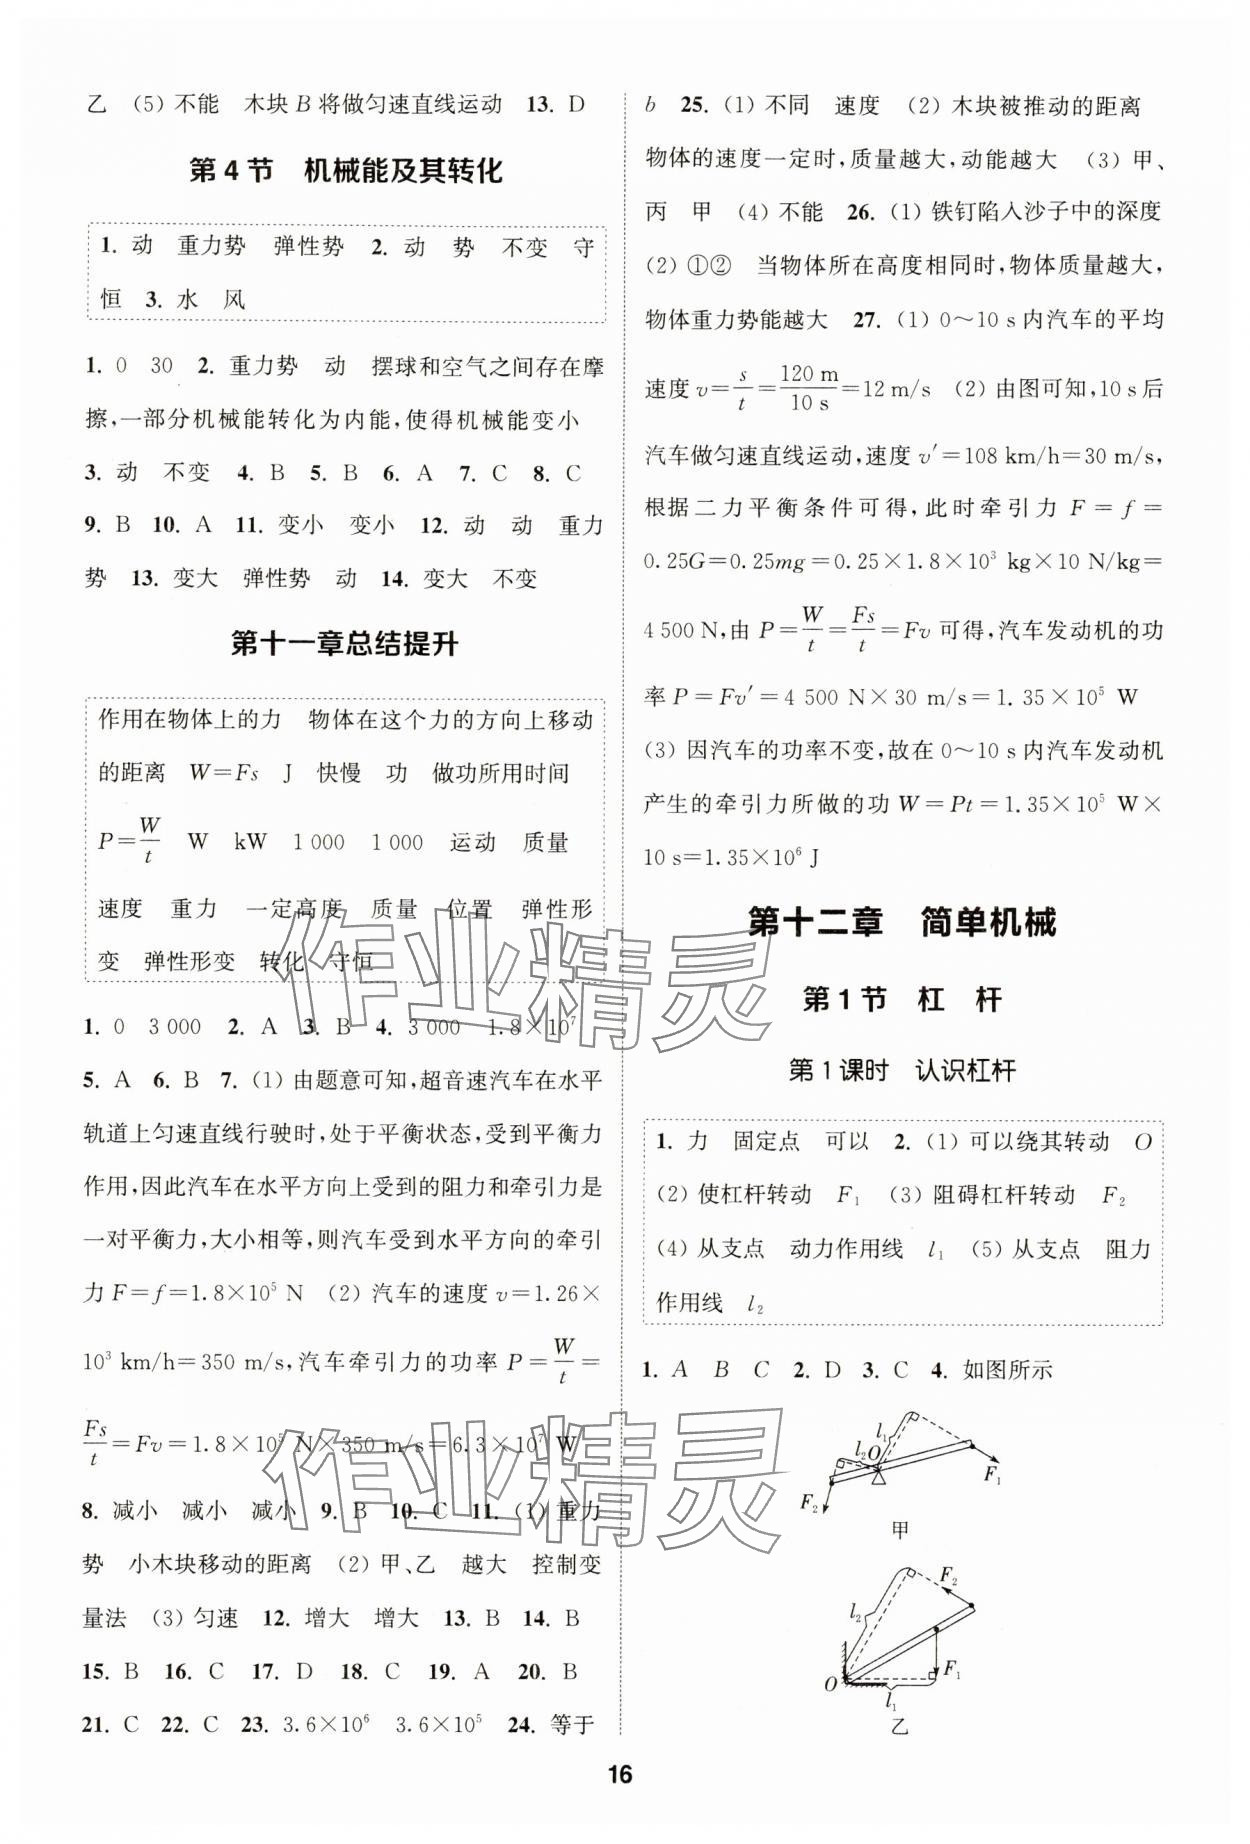 乙　(5) 不能　木块 B 将做匀速直线运动　13. D
第 4 节　机械能及其转化
1. 动　重力势　弹性势　2. 动　势　不变　守
恒　3. 水　风
1. 0　30　2. 重力势　动　摆球和空气之间存在摩
擦,一部分机械能转化为内能,使得机械能变小
3. 动　不变　4. B　5. B　6. A　7. C　8. C
9. B　10. A　11. 变小　变小　12. 动　动　重力
势　13. 变大　弹性势　动　14. 变大　不变
第十一章总结提升
作用在物体上的力　物体在这个力的方向上移动
的距离　W=Fs　J　快慢　功　做功所用时间
P=W/t　W　kW　1 000　1 000　运动　质量
速度　重力　一定高度　质量　位置　弹性形
变　弹性形变　转化　守恒
1. 0　3 000　2. A　3. B　4. 3 000　1.8×10⁷
5. A　6. B　7. (1) 由题意可知,超音速汽车在水平
轨道上匀速直线行驶时,处于平衡状态,受到平衡力
作用,因此汽车在水平方向上受到的阻力和牵引力是
一对平衡力,大小相等,则汽车受到水平方向的牵引
力 F=f=1.8×10⁵ N　(2) 汽车的速度 v=1.26×
10³ km/h=350 m/s,汽车牵引力的功率 P=W/t=
Fs/t=Fv=1.8×10⁵ N×350 m/s=6.3×10⁷ W
8. 减小　减小　减小　9. B　10. C　11. (1) 重力
势　小木块移动的距离　(2) 甲、乙　越大　控制变
量法　(3) 匀速　12. 增大　增大　13. B　14. B
15. B　16. C　17. D　18. C　19. A　20. B
21. C　22. C　23. 3.6×10⁶　3.6×10⁵　24. 等于
b　25. (1) 不同　速度　(2) 木块被推动的距离
物体的速度一定时,质量越大,动能越大　(3) 甲、
丙　甲　(4) 不能　26. (1) 铁钉陷入沙子中的深度
(2) ①②　当物体所在高度相同时,物体质量越大,
物体重力势能越大　27. (1) 0～10 s 内汽车的平均
速度 v=s/t=120 m/10 s=12 m/s　(2) 由图可知,10 s 后
汽车做匀速直线运动,速度 v′=108 km/h=30 m/s,
根据二力平衡条件可得,此时牵引力 F=f=
0.25G=0.25mg=0.25×1.8×10³ kg×10 N/kg=
4 500 N,由 P=W/t=Fs/t=Fv 可得,汽车发动机的功
率 P=Fv′=4 500 N×30 m/s=1.35×10⁵ W
(3) 因汽车的功率不变,故在 0～10 s 内汽车发动机
产生的牵引力所做的功 W=Pt=1.35×10⁵ W×
10 s=1.35×10⁶ J
第十二章　简单机械
第 1 节　杠　杆
第 1 课时　认识杠杆
1. 力　固定点　可以　2. (1) 可以绕其转动　O
(2) 使杠杆转动　F₁　(3) 阻碍杠杆转动　F₂
(4) 从支点　动力作用线　l₁　(5) 从支点　阻力
作用线　l₂
1. A　B　C　2. D　3. C　4. 如图所示
l₁
l₂ O
F₁
F₂
甲
F₂
l₂
F₁
O
l₁
乙
16
作业精灵
作业精灵